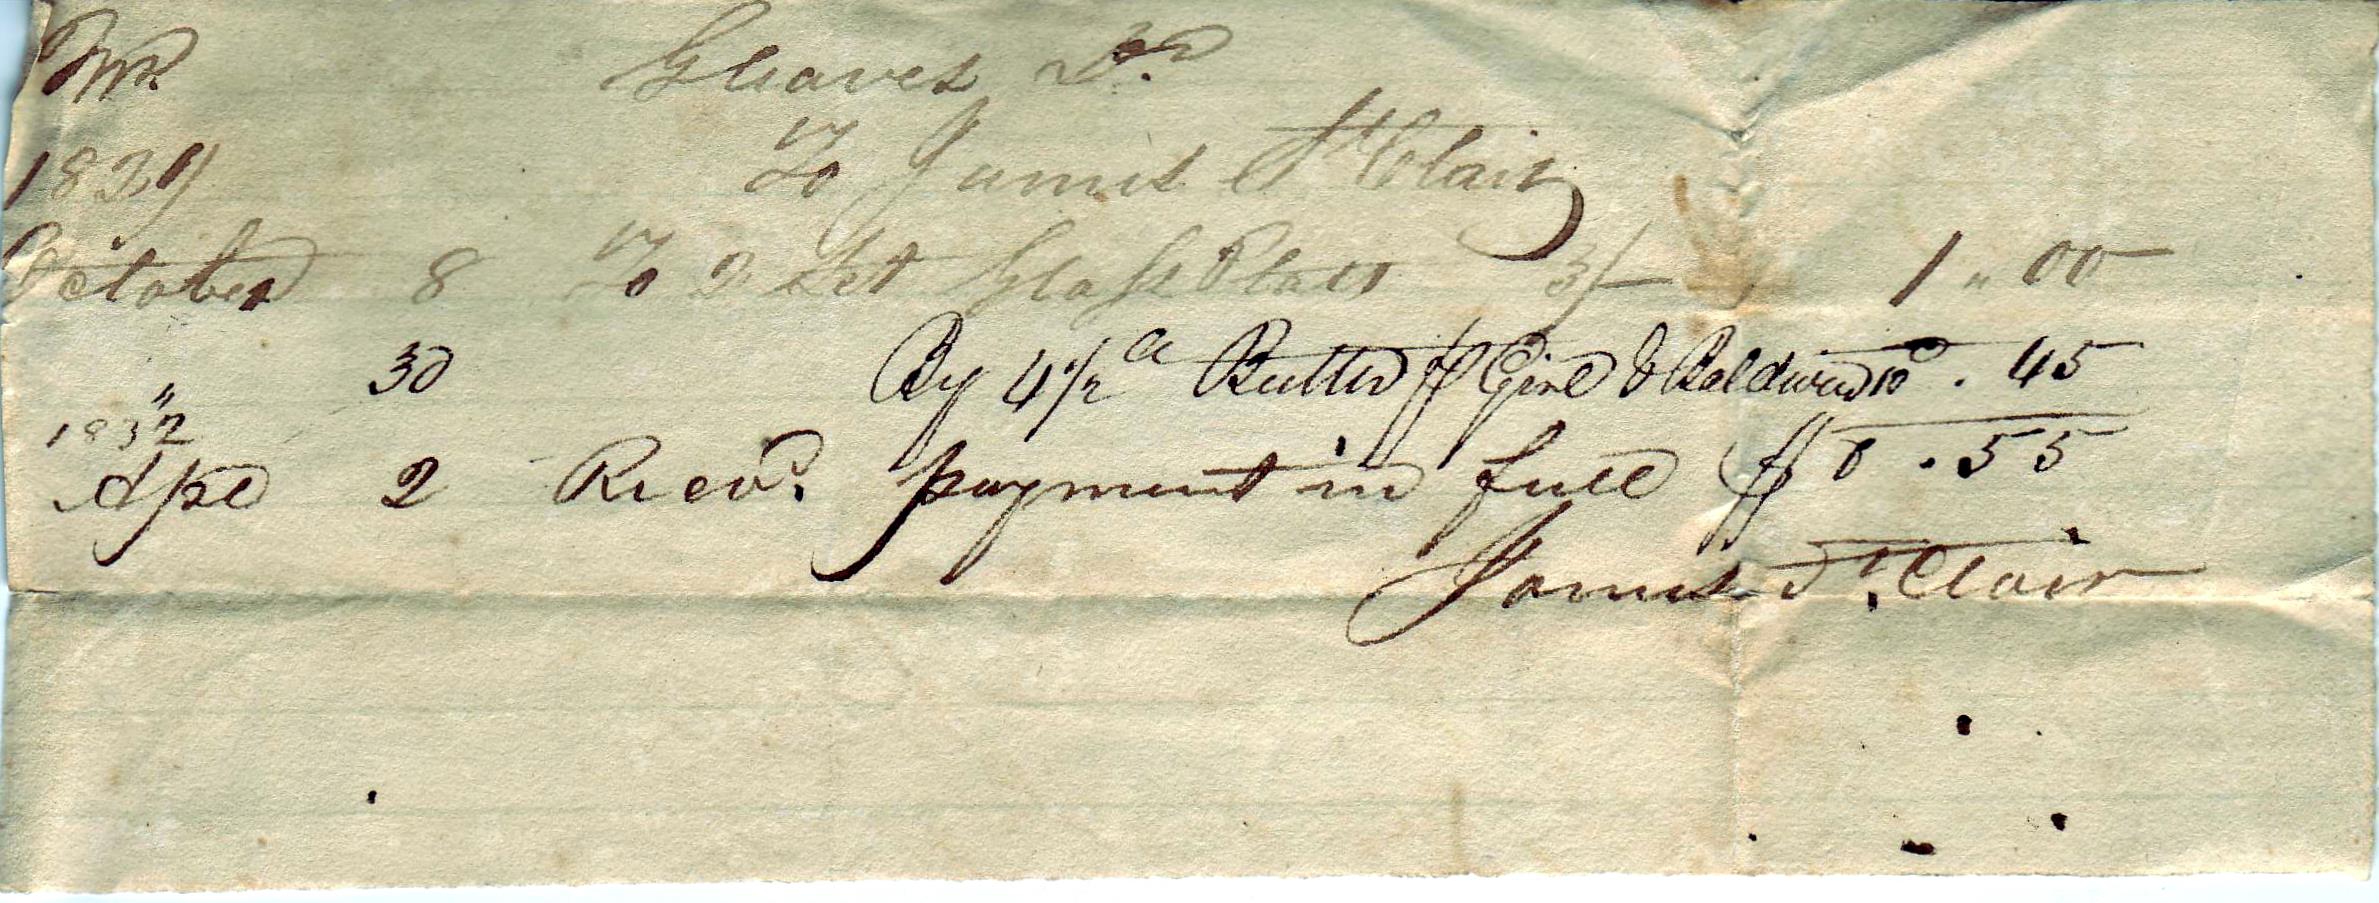 Wm Gleaves Dr
1839 To James St Clair
October 8 To 2 Set Glass Plates 3/ 1 " 00
" 30 By 4 1/2 a Butter & Baldwin 10 . 45
1832
Apl 2 Recvd. payment in full $ 0 . 55
James St. Clair